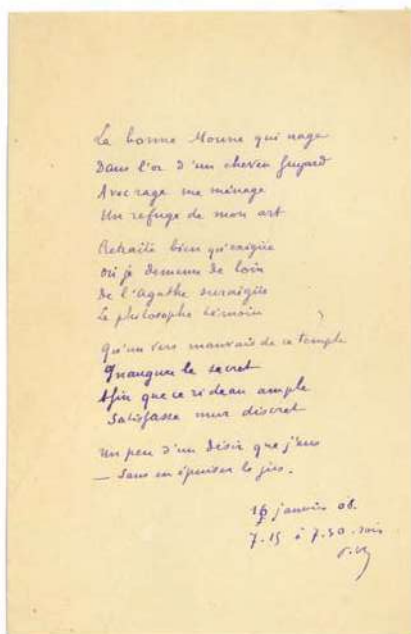 La bonne Moune qui nage
Dans l'or d'un cheveu fuyard
Avec rage me ménage
Un refuge de mon art
Retraite bien qu'exigüe
où je demeure de loin
De l'Agathe suraigüe
Le philosophe témoin
Qu'un vers mauvais de ce temple
Inaugure le secret
Afin que ce rideau ample
Satisfasse mur discret
Un peu d'un désir que j'eus
— Sans en épuiser le jus.
16 janvier 08.
7.15 à 7.30. soir
P.V.